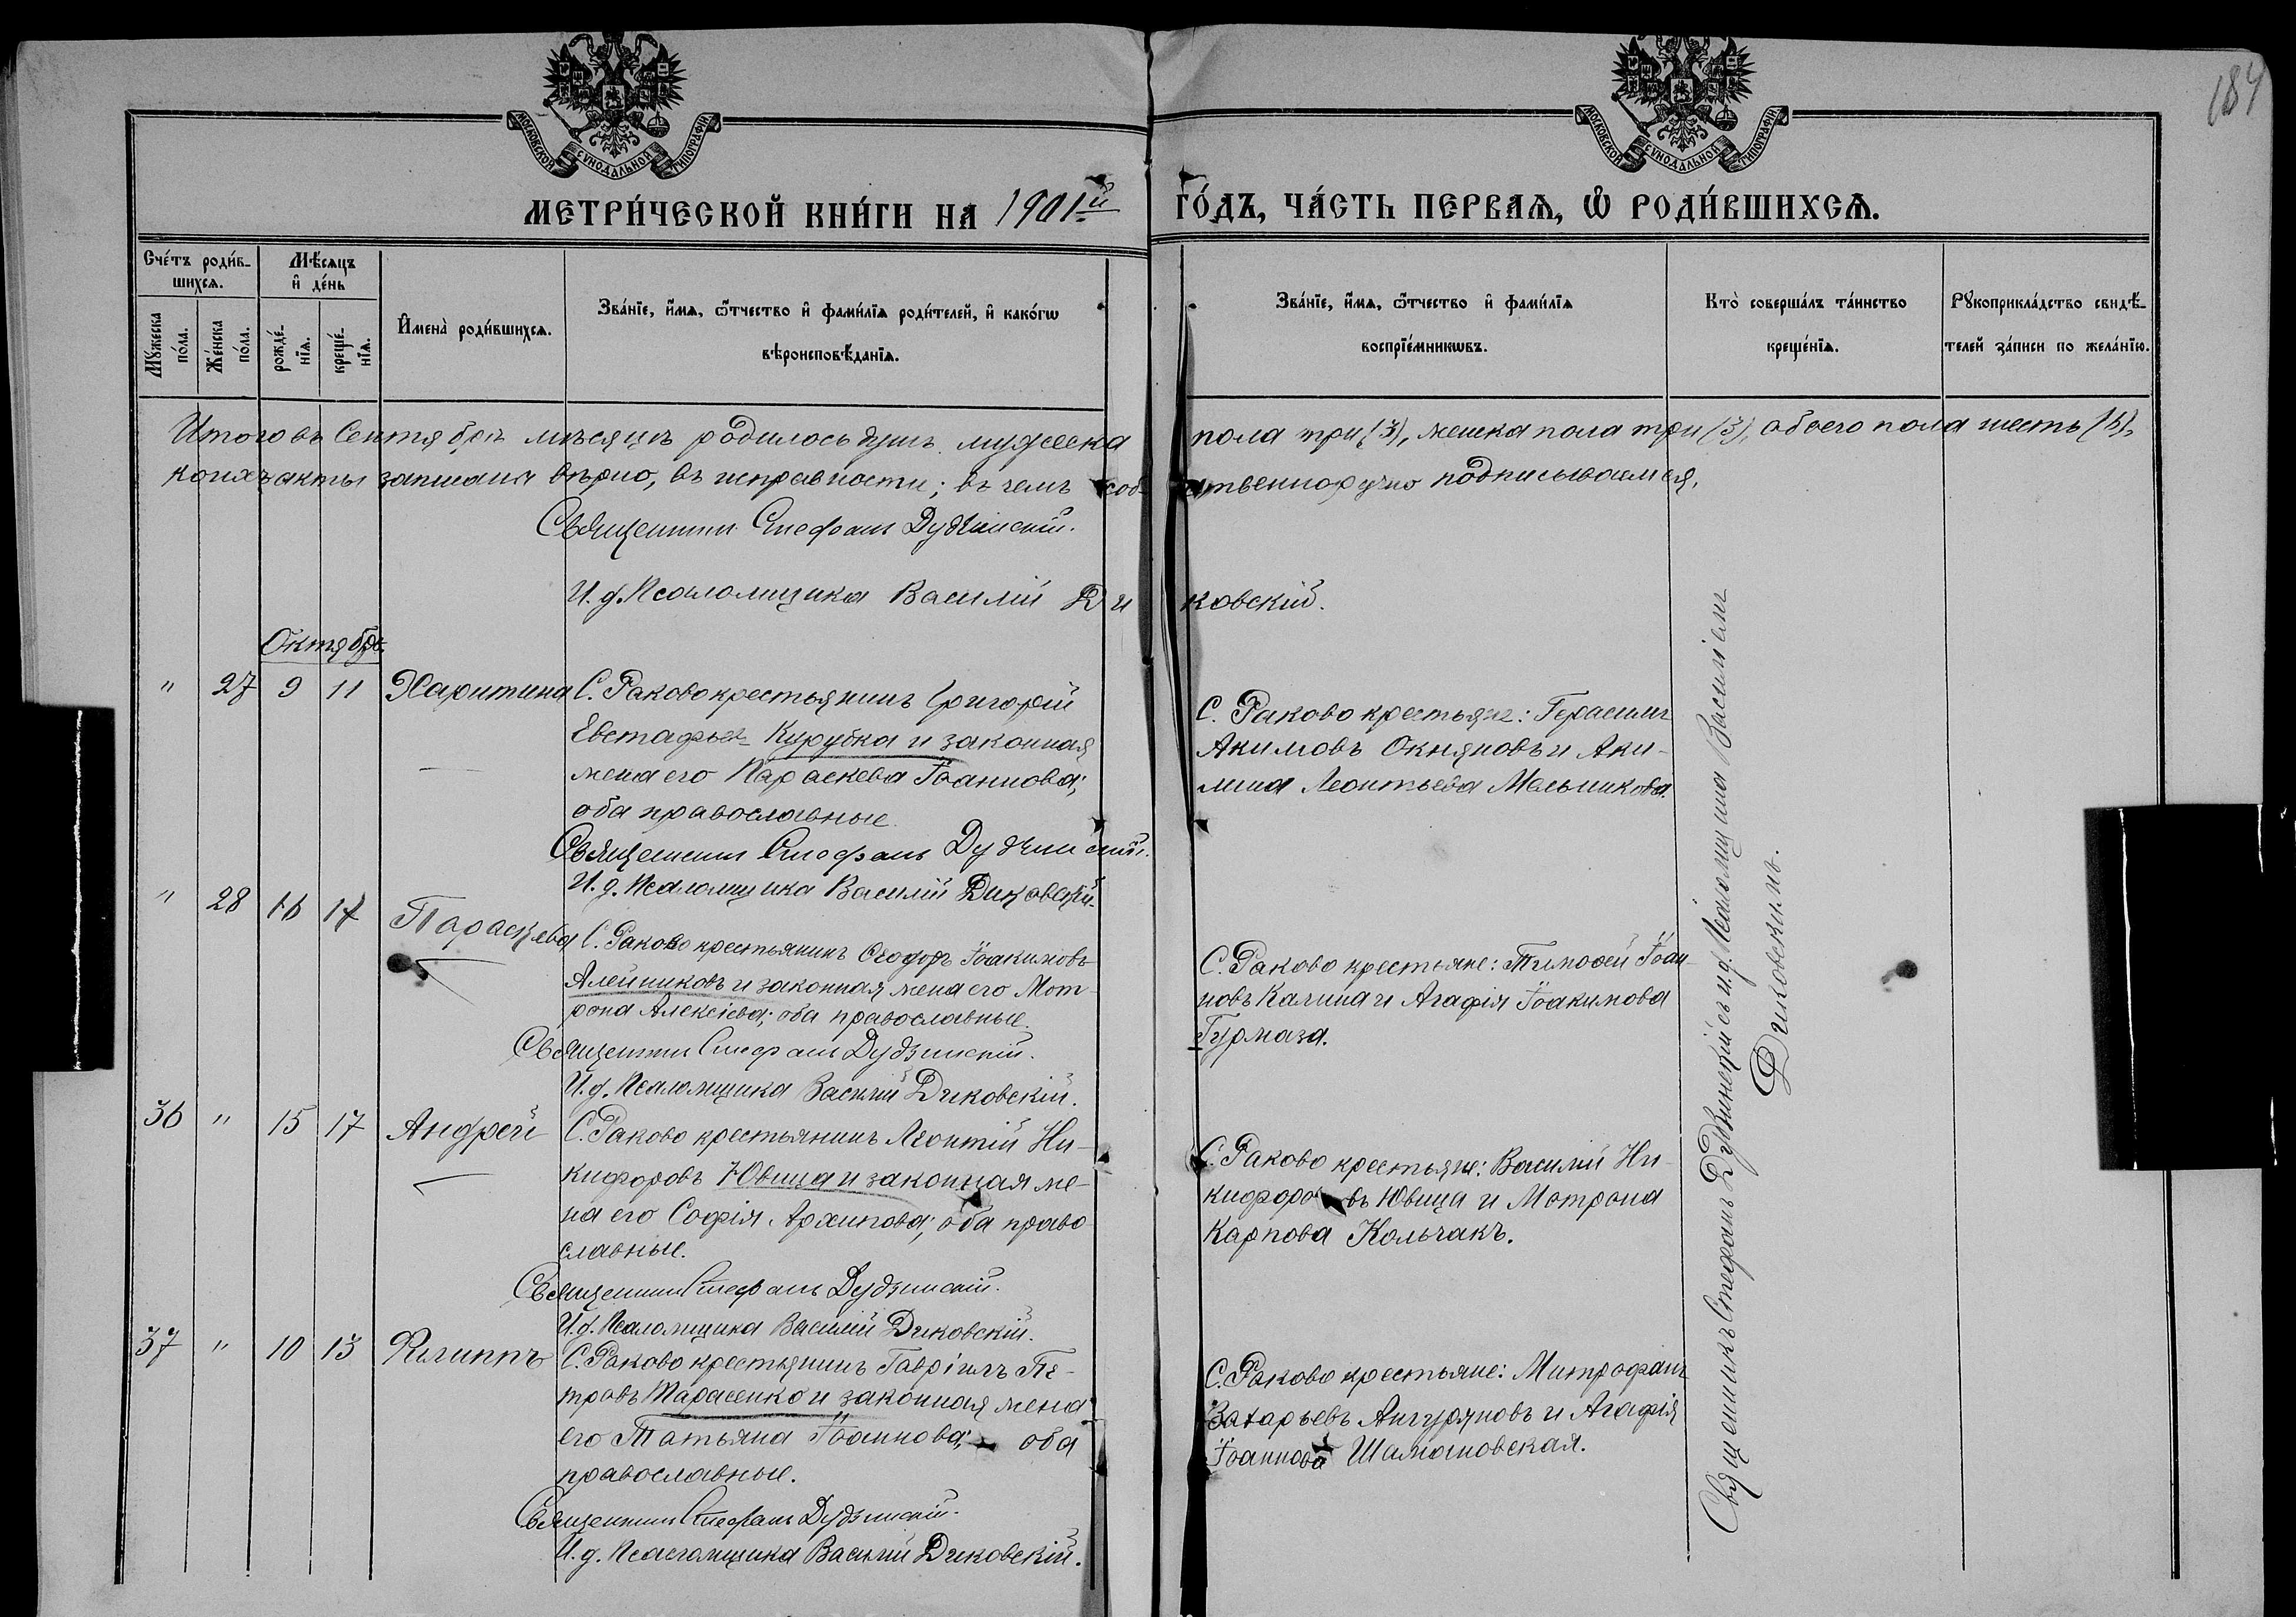 184
МОСКОВСКОЙ СУНОДАЛЬНОЙ ТИПОГРАФІИ
МОСКОВСКОЙ СУНОДАЛЬНОЙ ТИПОГРАФІИ
МЕТРИ́ЧЕСКОЙ КНИ́ГИ НА 1901й ГО́ДЪ, ЧА́СТЬ ПЕ́РВАѦ, Ѡ РОДИ́ВШИХСѦ.
Сче́тъ роди́в-
шихсѧ.
Мꙋ́жеска по́ла.
Же́нска по́ла.
Мѣ́сѧцъ
и҆ де́нь
рожде́-
нїѧ.
креще́-
нїѧ.
И҆мена̀ роди́вшихсѧ.
Зва́нїе, и҆́мѧ, ѻ҆́тчество и҆ фами́лїѧ роди́телей, и҆ како́гѡ
вѣроисповѣ́данїѧ.
Зва́нїе, и҆́мѧ, ѻ҆́тчество и҆ фами́лїѧ
воспрїе́мникѡвъ.
Кто̀ соверша́лъ та́инство
креще́нїѧ.
Рꙋкоприкла́дство свидѣ́-
телей за́писи по жела́нїю.
Итого въ Сентябрѣ мѣсяцѣ родилось душъ мужеска пола три (3), женска пола три (3), обоего пола шесть (6),
коихъ акты записаны вѣрно, въ исправности; въ чемъ собственноручно подписываемся.
Священникъ Стефанъ Дудзинскій.
И. д. Псаломщика Василій Диковскій.
Октябрь.
" 27 9 11 Харитина
С. Раково крестьянинъ Григорій
Евстафьев Курубка и законная
жена его Параскева Іоаннова;
оба православные.
Священникъ Стефанъ Дудзинскій.
И. д. Псаломщика Василій Диковскій.
С. Раково крестьяне: Герасимъ
Акимовъ Окняновъ и Аки-
лина Леонтьева Мельникова.
" 28 16 17 Параскева
С. Раково крестьянинъ Ѳеодоръ Іоакимовъ
Алейниковъ и законная жена его Мот-
рона Алексіева; оба православные.
Священникъ Стефанъ Дудзинскій.
И. д. Псаломщика Василій Диковскій.
С. Раково крестьяне: Тимоѳей Іоан-
новъ Калина и Агафія Іоакимова
Гурмаза.
36 " 15 17 Андрей
С. Раково крестьянинъ Леонтій Ни-
кифоровъ Ювица и законная же-
на его Софія Архипова; оба право-
славные.
Священникъ Стефанъ Дудзинскій.
И. д. Псаломщика Василій Диковскій.
С. Раково крестьяне: Василій Ни-
кифоровъ Ювица и Мотрона
Карпова Кольчакъ.
37 " 10 13 Филиппъ
С. Раково крестьянинъ Гавріилъ Пе-
тровъ Тарасенко и законная жена
его Татьяна Іоаннова; оба
православные.
Священникъ Стефанъ Дудзинскій.
И. д. Псаломщика Василій Диковскій.
С. Раково крестьяне: Митрофанъ
Захарьевъ Ангуряновъ и Агафія
Іоаннова Шамановская.
Священникъ Стефанъ Дудзинскій съ и. д. Псаломщика Василіемъ
Диковскимъ.